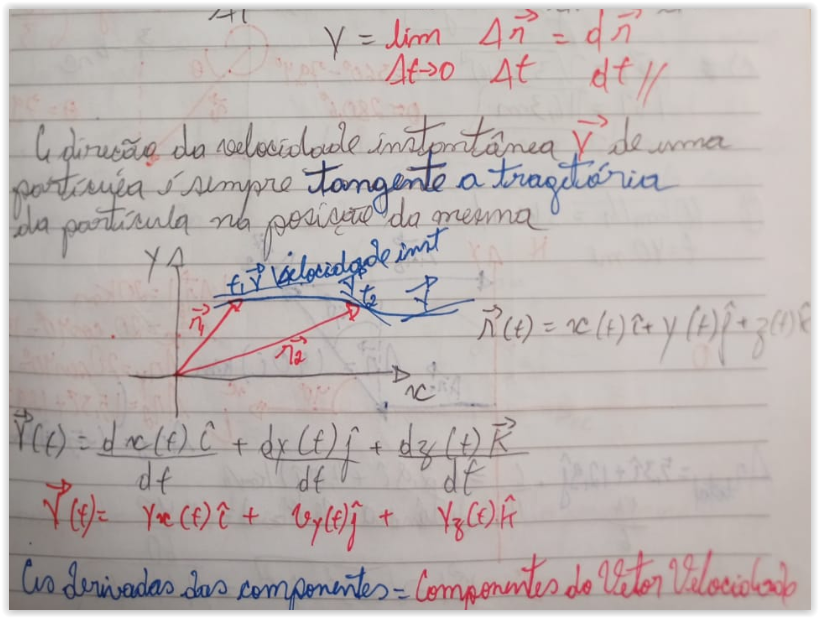 Δt
V = lim Δr⃗ = dr⃗
Δt→0 Δt dt //
A direção da velocidade instantânea V⃗ de uma
partícula é sempre tangente a tragitória
da partícula na posição da mesma
Y
t₁ V⃗ Velocidade inst
V⃗ t₂ V⃗
r⃗₁
r⃗₂
x
r⃗(t) = x(t)î + y(t)ĵ + z(t)k̂
V⃗(t) = dx(t)î + dy(t)ĵ + dz(t)k⃗
dt dt dt
V⃗(t) = Vx(t)î + Vy(t)ĵ + Vz(t)k̂
As derivadas das componentes = Componentes do Vetor Velocidade